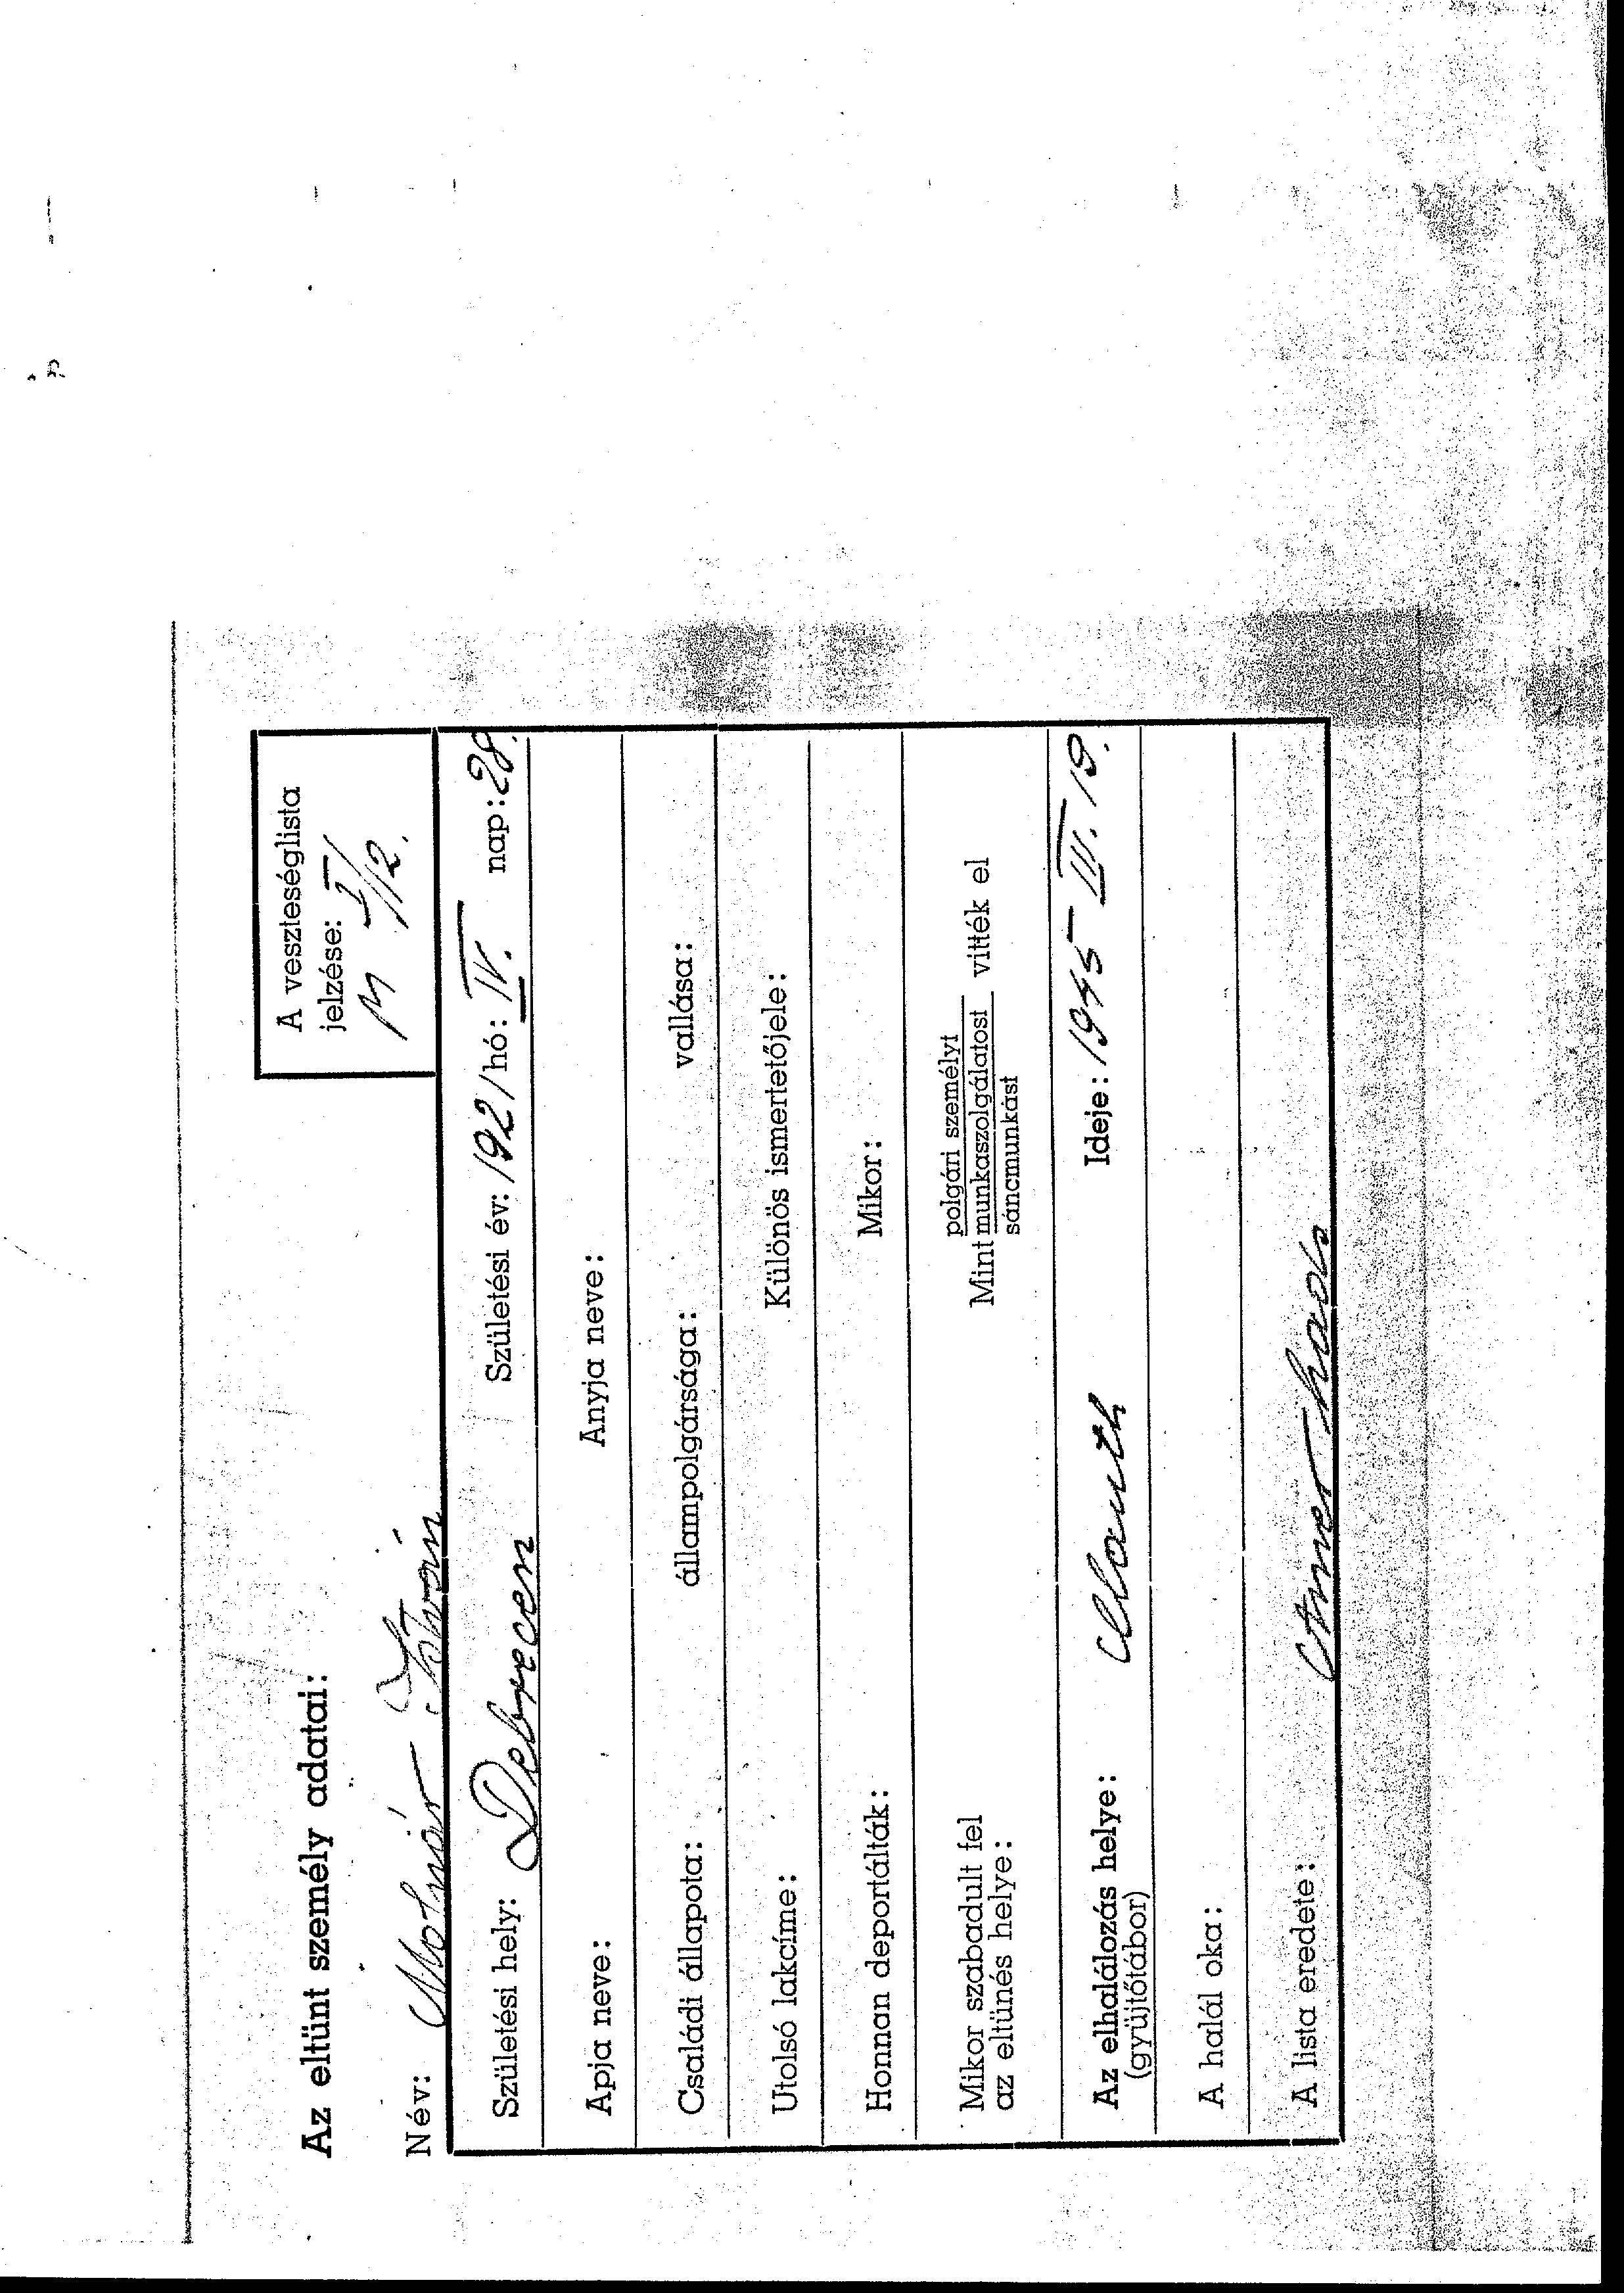 Az eltünt személy adatai:
A veszteséglista
jelzése: I/
M /12.
Név: Molnár István
Születési hely: Debrecen Születési év: 1921 hó: IV. nap: 28.
Apja neve: Anyja neve:
Családi állapota: állampolgársága: vallása:
Utolsó lakcíme: Különös ismertetőjele:
Honnan deportálták: Mikor:
Mikor szabadult fel
az eltünés helye:
polgári személyt
Mint munkaszolgálatost vitték el
sáncmunkást
Az elhalálozás helye: Mauth Ideje: 1945 IV. 19.
(gyüjtőtábor)
A halál oka:
A lista eredete: